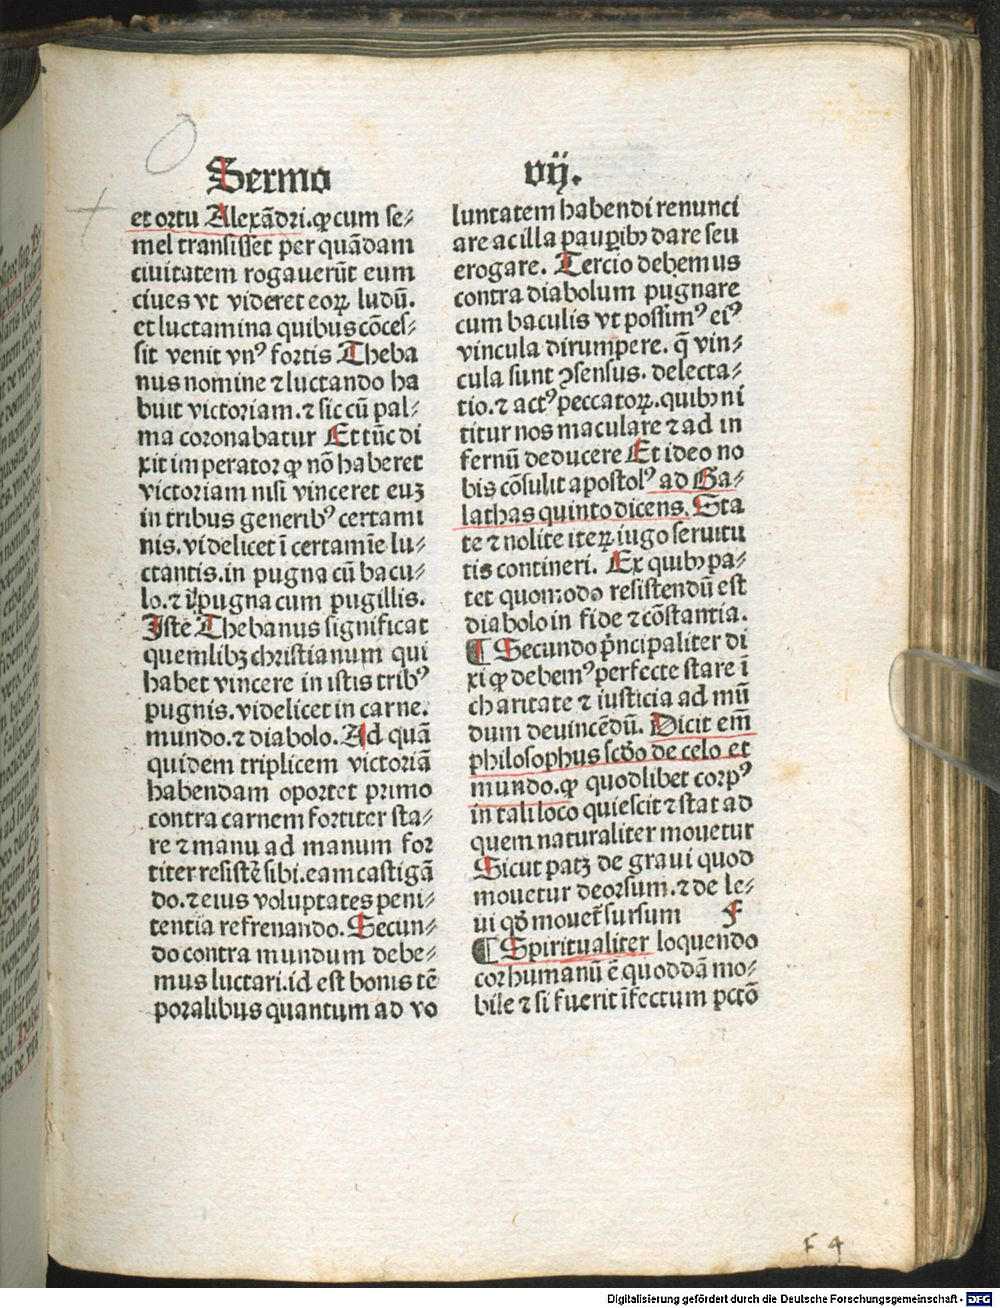 Sermo
vij.
et ortu Alexādri. ꝙ cum se⸗
mel transisset per quādam
ciuitatem rogauerūt eum
ciues vt videret eoꝝ ludū.
et luctamina quibus cōces⸗
sit venit vnꝰ fortis Theba
nus nomine ⁊ luctando ha
buit victoriam. ⁊ sic cū pal⸗
ma coronabatur Et tūc di
xit imperator ꝙ nō haberet
victoriam nisi vinceret euꝫ
in tribus generibꝰ certami
nis. videlicet ī certamīe lu⸗
ctantis. in pugna cū bacu⸗
lo. ⁊ pugna cum pugillis.
Iste Thebanus significat
quemlibꝫ christianum qui
habet vincere in istis tribꝰ
pugnis. videlicet in carne.
mundo. ⁊ diabolo. Ad quā
quidem triplicem victoriā
habendam oportet primo
contra carnem fortiter sta⸗
re ⁊ manu ad manum for
titer resistē sibi. eam castigā
do. ⁊ eius voluptates peni⸗
tentia refrenando. Secun⸗
do contra mundum debe⸗
mus luctari. id est bonis tē
poralibus quantum ad vo
luntatem habendi renunci
are ac illa pauꝑibꝫ dare seu
erogare. Tercio debemus
contra diabolum pugnare
cum baculis vt possimꝰ eiꝰ
vincula dirumpere. q̄ vin⸗
cula sunt ꝯsensus. delecta⸗
tio. ⁊ actꝰ peccatoꝝ. quibꝫ ni
titur nos maculare ⁊ ad in
fernū deducere Et ideo no
bis cōsulit apostolꝰ ad Ga⸗
lathas quinto dicens. Sta
te ⁊ nolite iteꝝ iugo seruitu
tis contineri. Ex quibꝫ pa⸗
tet quomodo resistendū est
diabolo in fide ⁊ cōstantia.
¶ Secundo p̄ncipaliter di
xi ꝙ debemꝰ perfecte stare ī
charitate ⁊ iusticia ad mū
dum deuincēdū. Dicit em̄
philosophus scd̄o de celo et
mundo. ꝙ quodlibet corpꝰ
in tali loco quiescit ⁊ stat ad
quem naturaliter mouetur
Sicut patꝫ de graui quod
mouetur deorsum. ⁊ de le⸗
ui qd̄ mouet᷑ sursum F
¶ Spiritualiter loquendo
cor humanū ē quoddā mo⸗
bile ⁊ si fuerit īfectum pctō
F 4
Digitalisierung gefördert durch die Deutsche Forschungsgemeinschaft - DFG